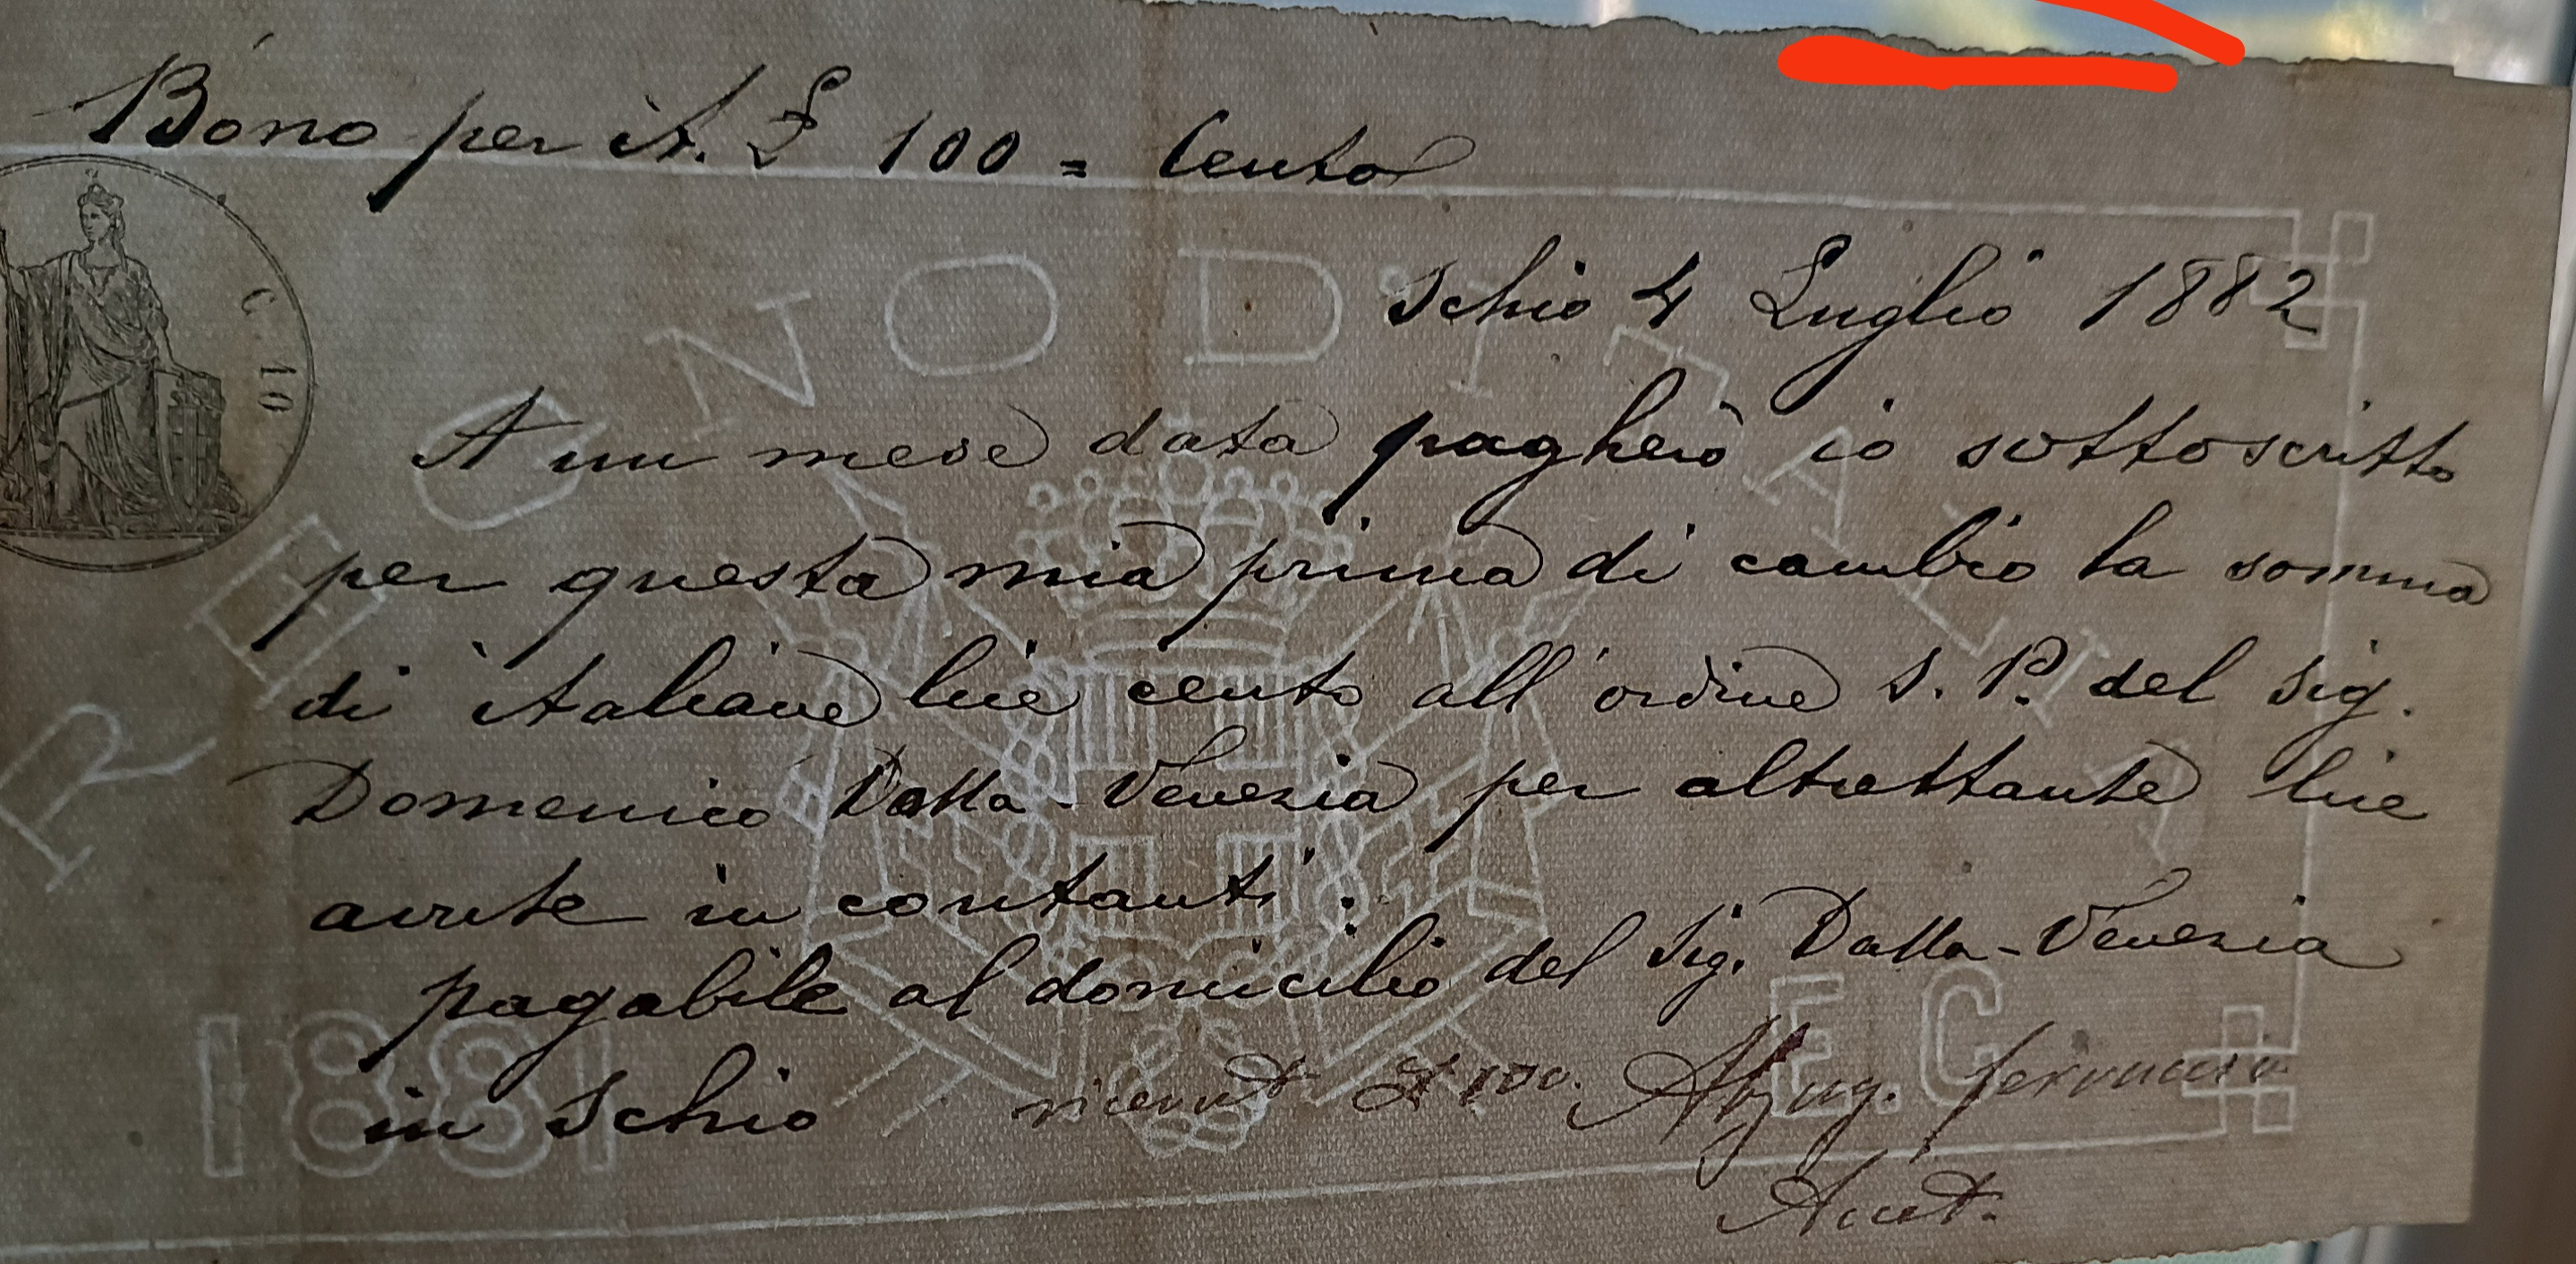 Bono per it. £ 100 = Cento
C. 10
REGNO D'ITALIA
Schio 4 Luglio 1882
A un mese data pagherò io sottoscritto
per questa mia prima di cambio la somma
di italiane lire cento all'ordine S. P. del Sig.
Domenico Dalla-Venezia per altrettante lire
avute in contanti:
pagabile al domicilio del Sig. Dalla-Venezia
in Schio
£ 100.
1881
E.C.